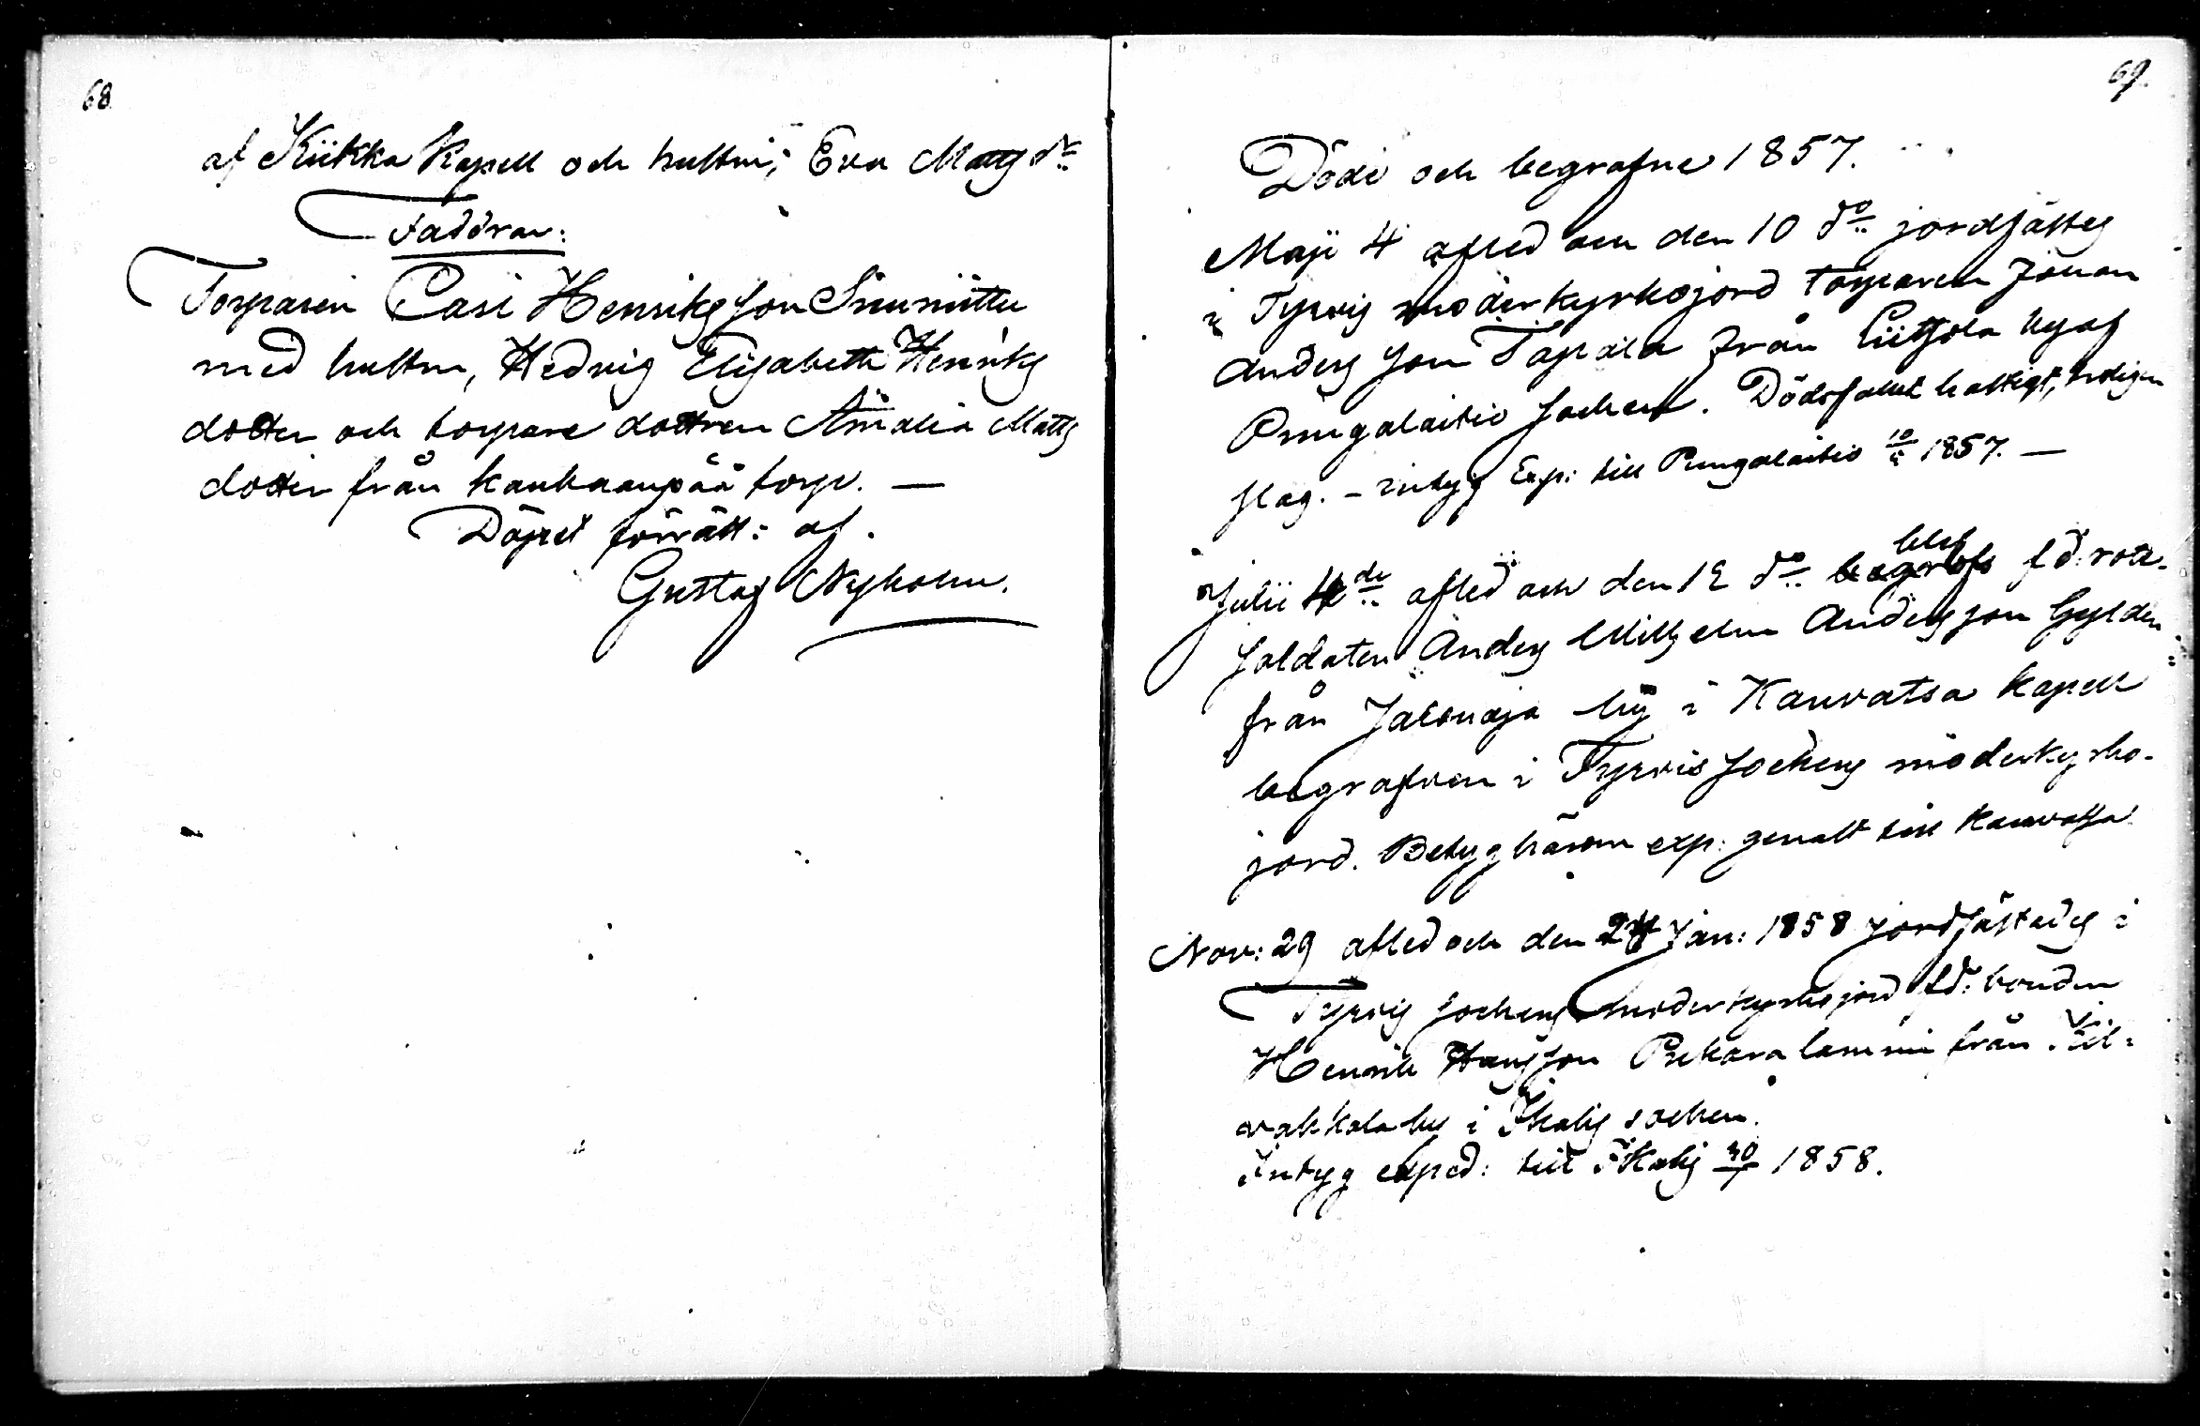 68.
af Kiikka Kapell och hustrun, Eva Matts dr
Faddrar:
Torparen Carl Henriksson Suuniittu
med hustrun, Hedvig Elisabeth Henriks
dotter och torpare dottren Amalia Matts
dotter från Kaukaanpää torp. —
Döpet förrätt: af
Gustaf Nyholm.
69.
Döde och begrafne 1857.
Maji 4 afled och den 10 do jordfästes
i Tyrvis moderkyrkojord torparen Johan
Anders son Tapola från Liitsola by af
Pungalaitio socken. Dödsfallet hastigt, troligen
slag. – intyg Exp: till Pungalaitio 10/5 1857. —
Julii 4de afled och den 12 do blef begrafs fd: rote-
soldaten Anders Wilhelm Andersson Gylden
från Jalonoja by i Kauvatsa Kapell
begrafven i Tyrvis sockens moderkyrko-
jord. Betyg härom exp: genast till Kauvatsa
Nov: 29 afled och den 24 Jan: 1858 jordfästades i
Tyrvis sockens moderkyrko jord fd: bonden
Henrik Hansson Pukara lammi från Kil-
vakkala by i Ikalis socken.
Intyg exped: till Ikalis 30/1 1858.